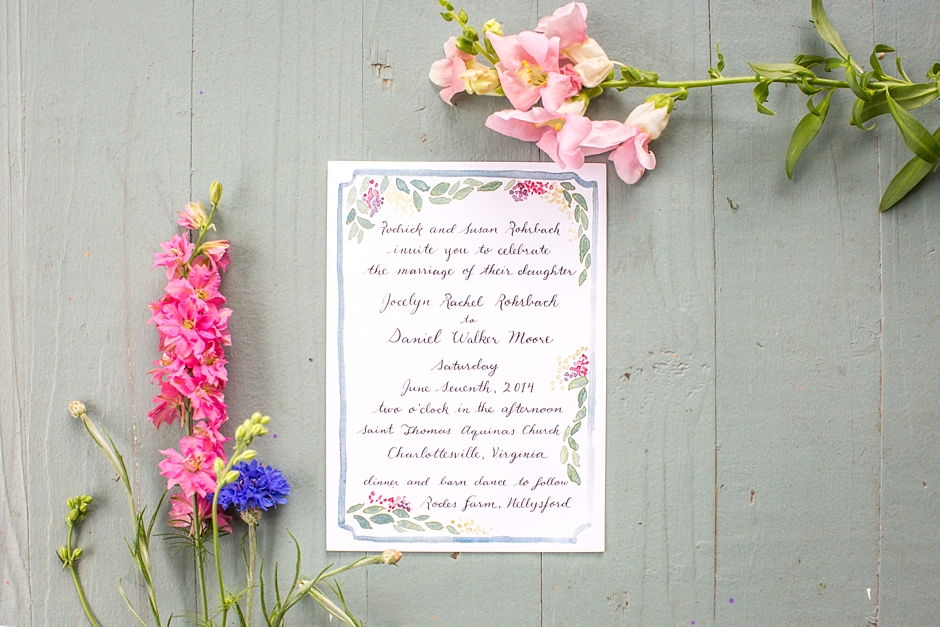 Rodrick and Susan Rohrbach
invite you to celebrate
the marriage of their daughter
Jocelyn Rachel Rohrbach
to
Daniel Walker Moore
Saturday
June Seventh, 2014
two o'clock in the afternoon
Saint Thomas Aquinas Church
Charlottesville, Virginia
dinner and barn dance to follow
Rodes Farm, Nellysford